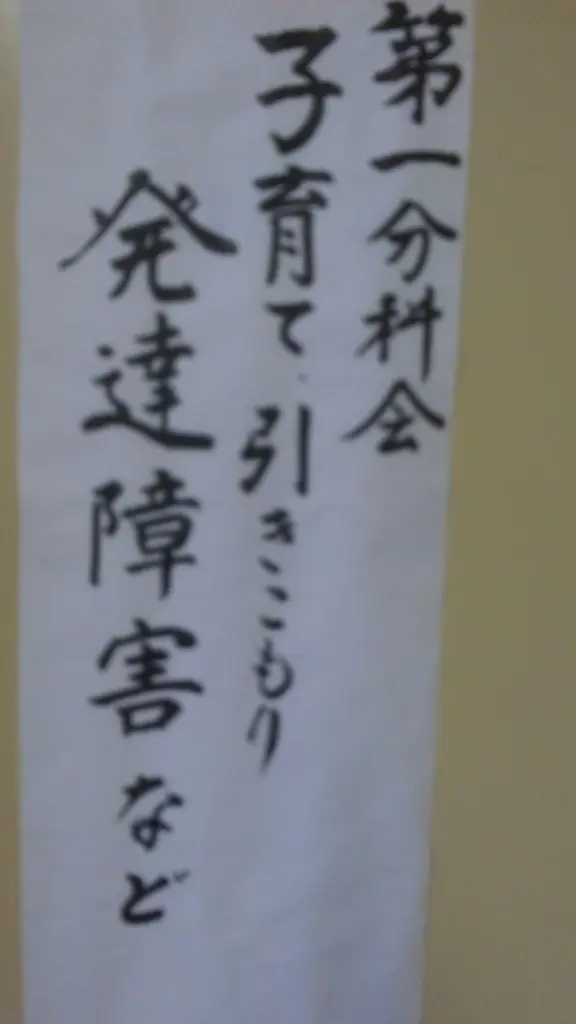 第一分科会
子育て・引きこもり
発達障害など